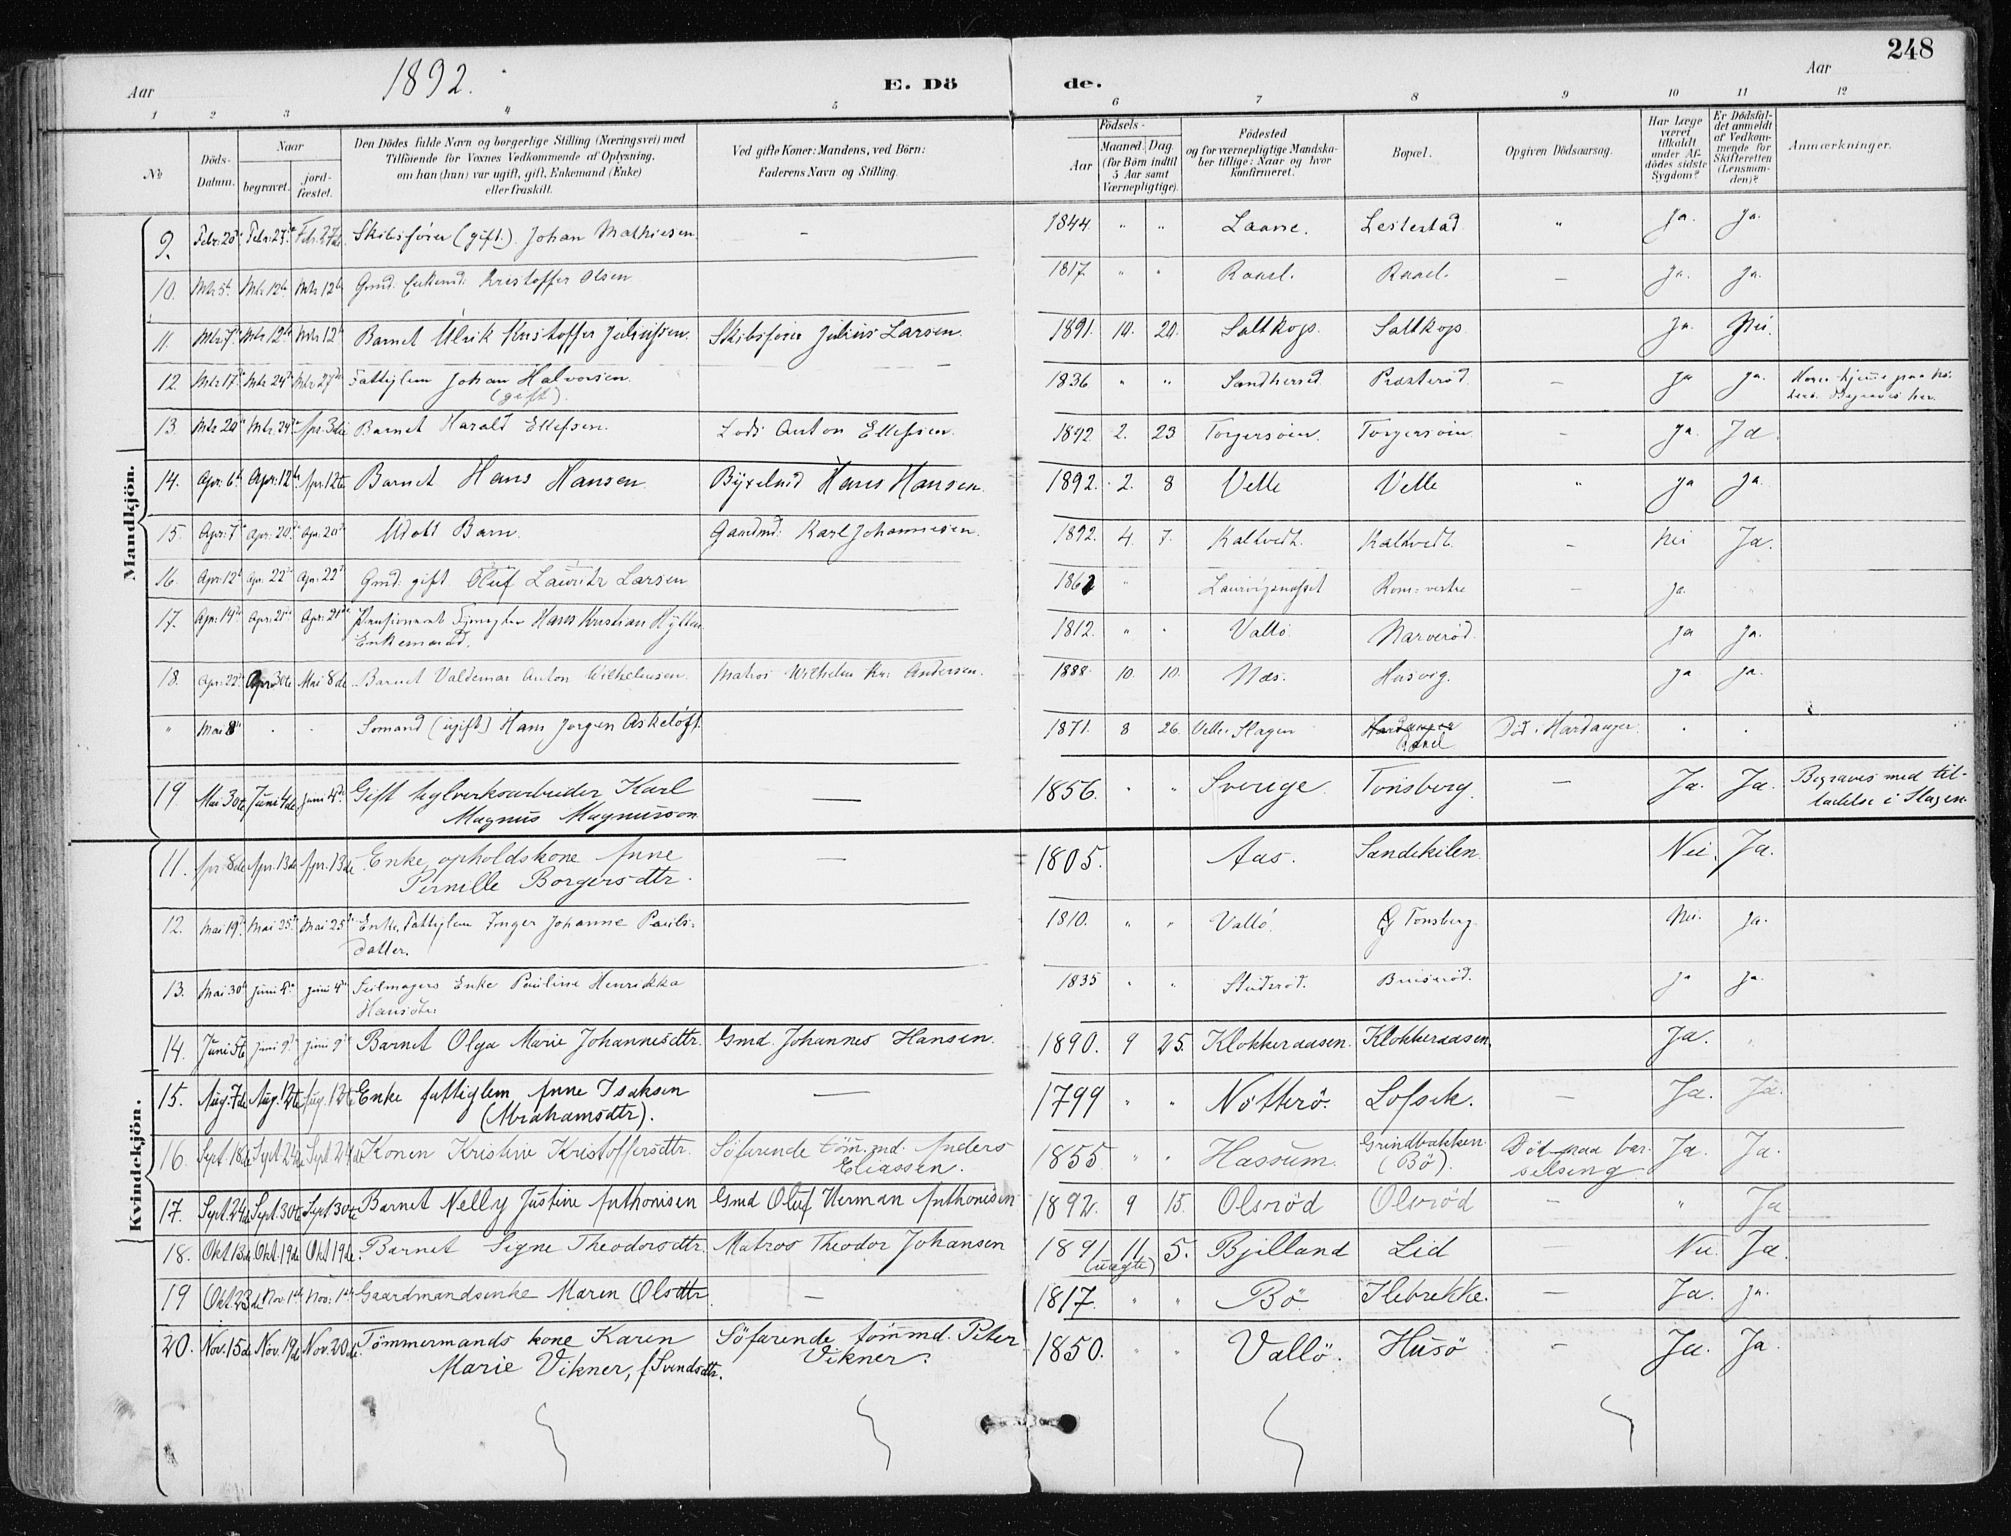 248
Aar 1892. E. Dö de. Aar
1 2 3 4 5 6 7 8 9 10 11 12
№ Döds-Datum. Naar begravet. jord-fæstet. Den Dödes fulde Navn og borgerlige Stilling (Næringsvei) med Tilföiende for Voxnes Vedkommende af Oplysning, om han (hun) var ugift, gift, Enkemand (Enke) eller fraskilt. Ved gifte Koner: Mandens, ved Börn: Faderens Navn og Stilling. Födsels- Aar Maaned. Dag. (for Börn indtil 5 Aar samt Værnepligtige). Födested og for værnepligtige Mandskaber tillige: Naar og hvor konfirmeret. Bopæl. Opgiven Dödsaarsag. Har Læge været tilkaldt under Afdödes sidste Sygdom? Er Dödsfaldet anmeldt af Vedkommende for Skifteretten (Lensmanden)? Anmærkninger.
Mandkjön.
9. Febr. 20 Febr. 27 Febr. 27de Skibsförer (gift). Johan Mathiesen - 1844. " " Laane. Leilestad " Ja. Ja.
10. Mts 5te Mts 12te Mts 12te Gmd. Enkemd. Kristoffer Olsen 1817. " " Raael. Raael. - Ja. Ja.
11. Mts 7de Mts 12te Mts 12te Barnet Ulrik Kristoffer Juliussen. Skibsförer Julius Larsen. 1891. 10. 20. Saltkop. Saltkop. Ja. Nei.
12. Mts 17de Mts 24de Mts 27de Fattiglem Johan Halvorsen (gift). - 1836 " " Sandherred. Præsteröd. - Ja Ja.
13. Mts 20 Mts 24de Apr. 3die Barnet Harald Ellefsen. Lods Anton Ellefsen. 1892 2. 23 Torgersöen. Torgersöen - Ja. Ja
14. Apr. 6te Apr. 12te Apr. 12te Barnet Hans Hansen Byxelmd Hans Hansen. 1892. 2. 8 Velle Velle " Ja Ja.
15. Apr. 7de Apr. 20de Apr. 20de Udöbt Barn. Gaardmd: Karl Johannesen. 1892. 4. 7. Kaltvedt. Kaltvedt. - Nei Ja.
16. Apr. 12te Apr. 22de Apr. 22de Gmd. gift. Oluf Lauritz Larsen 1862 " Laurvigsnæsset Rom: vestre Ja.
17. Apr. 14de Apr. 21de Apr. 21de Pensioneret Hans Kristian Hytten
Enkemand. 1812. " " Vallö. Narveröd. Ja Ja.
18. Apr. 22de Apr. 30te Mai 8de Barnet Valdemar Anton Wilhelmsen. Matros Wilhelm Kr. Andersen. 1888. 10. 10. Næs. Husvig. Ja Ja.
" Mai 8 . . Sömand (ugift) Hans Jörgen Askeløft. 1871. 8 26. Velle. Slagen Hardanger Raael Död i Hardanger. . .
19. Mai 30te Juni 4de Juni 4de Gift Sylverksarbeider Karl
Magnus Magnusson — 1856. " " Sverige Tönsberg. — Ja. Ja. Begraves med til-
ladelse i Slagen.
Kvindekjön.
11. Apr. 8de Apr. 13de Apr. 13de Enke, opholdskone Anne
Pernille Borgersdtr. — 1805. Aas. Sandekilen. Nei. Ja.
12. Mai 19de Mai 25de Mai 25de Enke, Fattiglem Inger Johanne Pauls-
datter. 1810. " " Vallö. Tönsberg. Nei. Ja.
13. Mai 30te Juni 4de Juni 4de Seilmagers Enke Pauline Henrikka
Hansdtr. 1835 " " Studeröd. Ja Ja.
14. Juni 5te Juni 9de Juni 9de Barnet Olga Marie Johannesdtr. Gmd. Johannes Hansen. 1890. 9 25. Klokkeraasen. Klokkeraasen. Ja. "
15. Aug. 7de Aug. 12te Aug. 12te Enke fattiglem Anne Isaksen
(Abrahamsdtr). — 1799 " " Nötterö. Lofsek. — Ja. Ja.
16. Sept. 18de Sept. 24de Sept 24de Konen Kristine Kristoffersdtr. Söfarende tömmd. Anders
Eliassen. 1855. " " Hassum. Grindbakken. (Bö). Död paa bar-
selseng Ja. Ja.
17. Sept. 24de Sept. 30te Sept 30te Barnet Nelly Justine Anthonisen Gmd Oluf Herman Anthonisen 1892. 9 15. Olsröd Olsröd — " Ja
18. Okt. 13de Okt. 19de Okt. 19de Barnet Signe Theodorsdtr. Matros Theodor Johansen 1891 11 5. (uægte) Bjelland Lid — Nei Ja.
19 Okt. 23de Nov. 1ste Nov. 1ste Gaardmandsenke Maren Olsdtr. — 1817. " " Bö. Ilebrekke. — Ja. Ja.
20. Nov. 15de Nov. 19de Nov. 20de Tömmermands kone Karen
Marie Vikner, f. Svendsdtr. Söfarende tömmd. Peter
Vikner. 1850. " " Vallö. Husö — Ja. Ja.